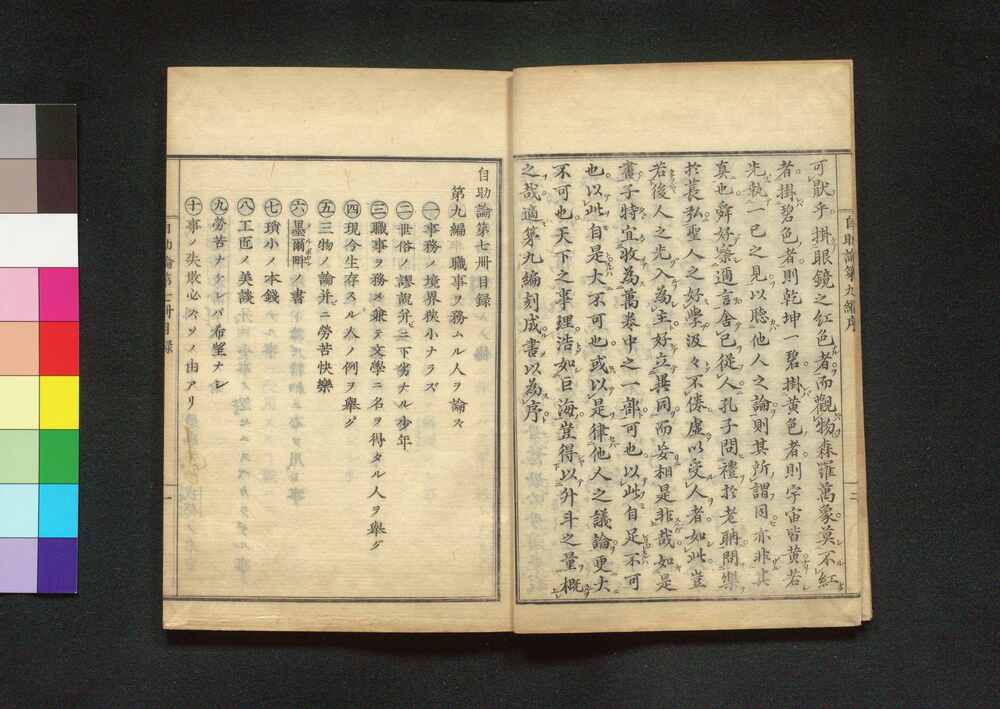 可猒乎掛眼鏡之紅色者而觀物森羅萬象莫不紅
者掛碧色者則乾坤一碧掛黄色者則宇宙皆黄若
先執一己之見以聽他人之論則其所謂同亦非其
真也舜好察邇言舍己從人孔子問禮於老聃問樂
於萇弘聖人之好學汲々不倦虛以受人者如此豈
若後人之先入為主好立異同而妄相是非哉如是
畫子特宜收為萬卷中之一部可也以此自足不可
也以此自是大不可也或以是律他人之議論更大
不可也天下之事理浩如巨海豈得以升斗之量概
之哉適第九編刻成書以為序
自助論第九編序
二
自助論第七冊目録
第九編 職事ヲ務ムル人ヲ論ス
一 事務ノ境界狹小ナラズ
二 世俗ノ謬說并ニ下劣ナル少年
三 職事ヲ務メ兼テ文學ニ名ヲ得タル人ヲ舉グ
四 現今生存スル人ノ例ヲ舉グ
五 三物ノ論并ニ勞苦快樂
六 墨爾畔ノ書
七 瑣小ノ本錢
八 工匠ノ美談
九 勞苦ナケレバ希望ナシ
十 事ノ失敗必ズソノ由アリ
自助論第七冊目録
一